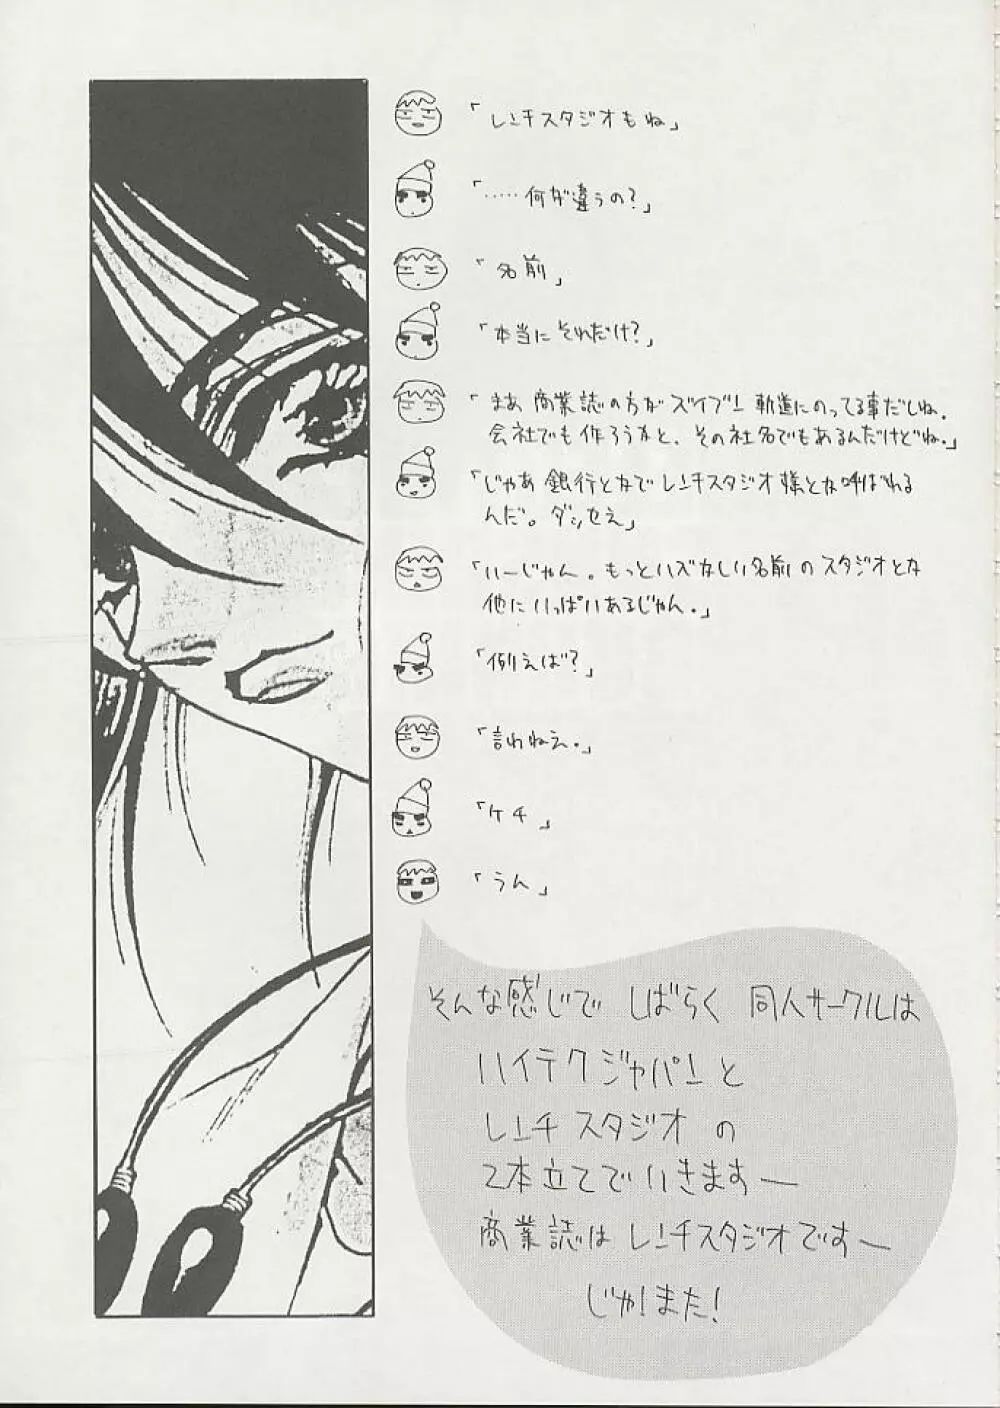 「レンチスタジオもね」
「……何が違うの?」
「名前」
「本当にそれだけ?」
「まあ商業誌の方がズイブン軌道にのってる事だしね。
会社でも作ろうかと、その社名でもあるんだけどね。」
「じゃあ銀行とかでレンチスタジオ様とか呼ばれる
んだ。ダッセえ」
「いーじゃん。もっとハズかしい名前のスタジオとか
他にいっぱいあるじゃん。」
「例えば?」
「言わねえ。」
「ケチ」
「うん」
そんな感じで しばらく 同人サークルは
ハイテクジャパンと
レンチスタジオの
2本立てでいきますー
商業誌はレンチスタジオですー
じゃ!また!